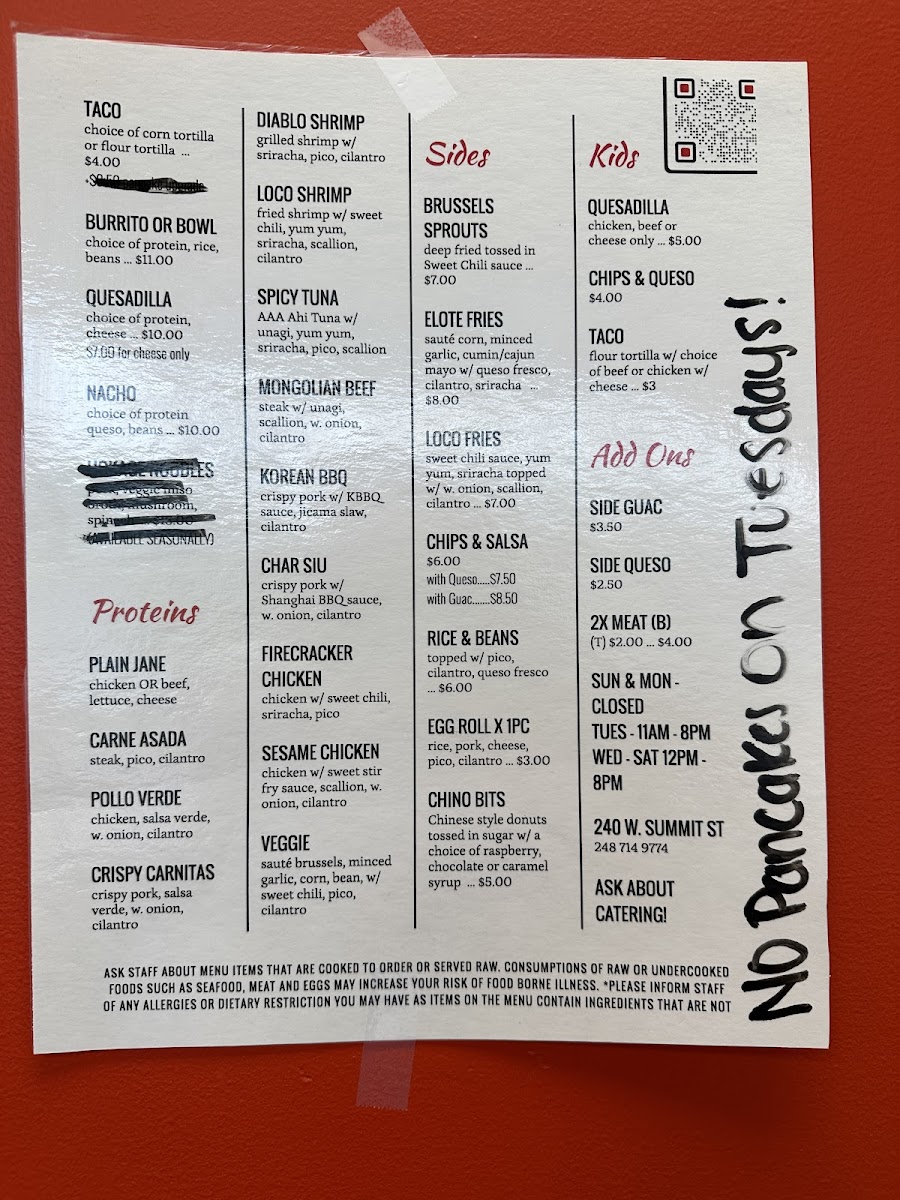 TACO
choice of corn tortilla
or flour tortilla ...
$4.00
BURRITO OR BOWL
choice of protein, rice,
beans ... $11.00
QUESADILLA
choice of protein,
cheese ... $10.00
$7.00 for cheese only
NACHO
choice of protein
queso, beans ... $10.00
NOODLES
veggie miso
mushroom,
(AVAILABLE SEASONALLY)
Proteins
PLAIN JANE
chicken OR beef,
lettuce, cheese
CARNE ASADA
steak, pico, cilantro
POLLO VERDE
chicken, salsa verde,
w. onion, cilantro
CRISPY CARNITAS
crispy pork, salsa
verde, w. onion,
cilantro
DIABLO SHRIMP
grilled shrimp w/
sriracha, pico, cilantro
LOCO SHRIMP
fried shrimp w/ sweet
chili, yum yum,
sriracha, scallion,
cilantro
SPICY TUNA
AAA Ahi Tuna w/
unagi, yum yum,
sriracha, pico, scallion
MONGOLIAN BEEF
steak w/ unagi,
scallion, w. onion,
cilantro
KOREAN BBQ
crispy pork w/ KBBQ
sauce, jicama slaw,
cilantro
CHAR SIU
crispy pork w/
Shanghai BBQ sauce,
w. onion, cilantro
FIRECRACKER
CHICKEN
chicken w/ sweet chili,
sriracha, pico
SESAME CHICKEN
chicken w/ sweet stir
fry sauce, scallion, w.
onion, cilantro
VEGGIE
sauté brussels, minced
garlic, corn, bean, w/
sweet chili, pico,
cilantro
Sides
BRUSSELS
SPROUTS
deep fried tossed in
Sweet Chili sauce ...
$7.00
ELOTE FRIES
sauté corn, minced
garlic, cumin/cajun
mayo w/ queso fresco,
cilantro, sriracha ...
$8.00
LOCO FRIES
sweet chili sauce, yum
yum, sriracha topped
w/ w. onion, scallion,
cilantro ... $7.00
CHIPS & SALSA
$6.00
with Queso.....$7.50
with Guac.......$8.50
RICE & BEANS
topped w/ pico,
cilantro, queso fresco
... $6.00
EGG ROLL X 1PC
rice, pork, cheese,
pico, cilantro ... $3.00
CHINO BITS
Chinese style donuts
tossed in sugar w/ a
choice of raspberry,
chocolate or caramel
syrup ... $5.00
Kids
QUESADILLA
chicken, beef or
cheese only ... $5.00
CHIPS & QUESO
$4.00
TACO
flour tortilla w/ choice
of beef or chicken w/
cheese ... $3
Add Ons
SIDE GUAC
$3.50
SIDE QUESO
$2.50
2X MEAT (B)
(T) $2.00 ... $4.00
SUN & MON -
CLOSED
TUES - 11AM - 8PM
WED - SAT 12PM -
8PM
240 W. SUMMIT ST
248 714 9774
ASK ABOUT
CATERING!
No Pancakes on Tuesdays!
ASK STAFF ABOUT MENU ITEMS THAT ARE COOKED TO ORDER OR SERVED RAW. CONSUMPTIONS OF RAW OR UNDERCOOKED
FOODS SUCH AS SEAFOOD, MEAT AND EGGS MAY INCREASE YOUR RISK OF FOOD BORNE ILLNESS. *PLEASE INFORM STAFF
OF ANY ALLERGIES OR DIETARY RESTRICTION YOU MAY HAVE AS ITEMS ON THE MENU CONTAIN INGREDIENTS THAT ARE NOT